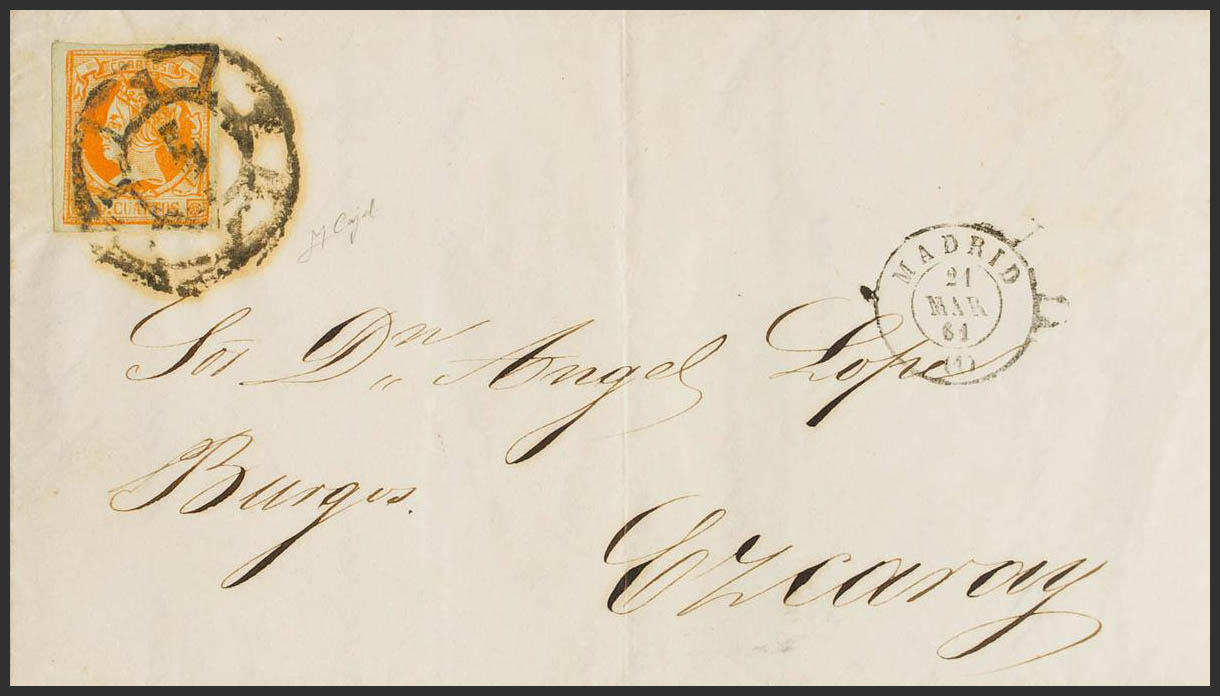 CORREOS
CUARTOS
MADRID
21
MAR
61
(1)
Sor Dn Angel Lope
Burgos.
Ezcaray